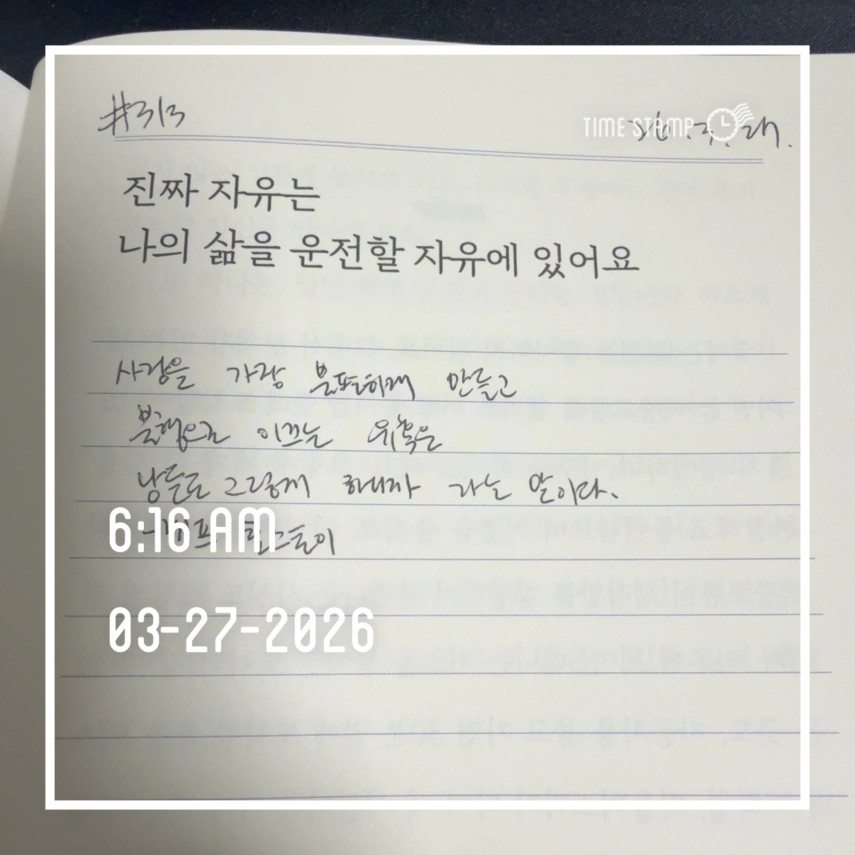 #313
TIME STAMP
26. 3. 27.
진짜 자유는
나의 삶을 운전할 자유에 있어요
사람을 가장 불편하게 만들고
불행으로 이끄는 유혹은
남들도 그렇게 하니까 라는 말이다.
톨스토이
6:16 AM
03-27-2026